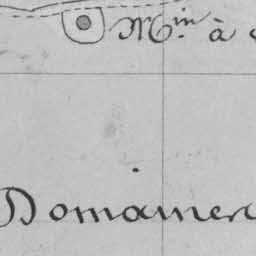 Min. à
Domainen